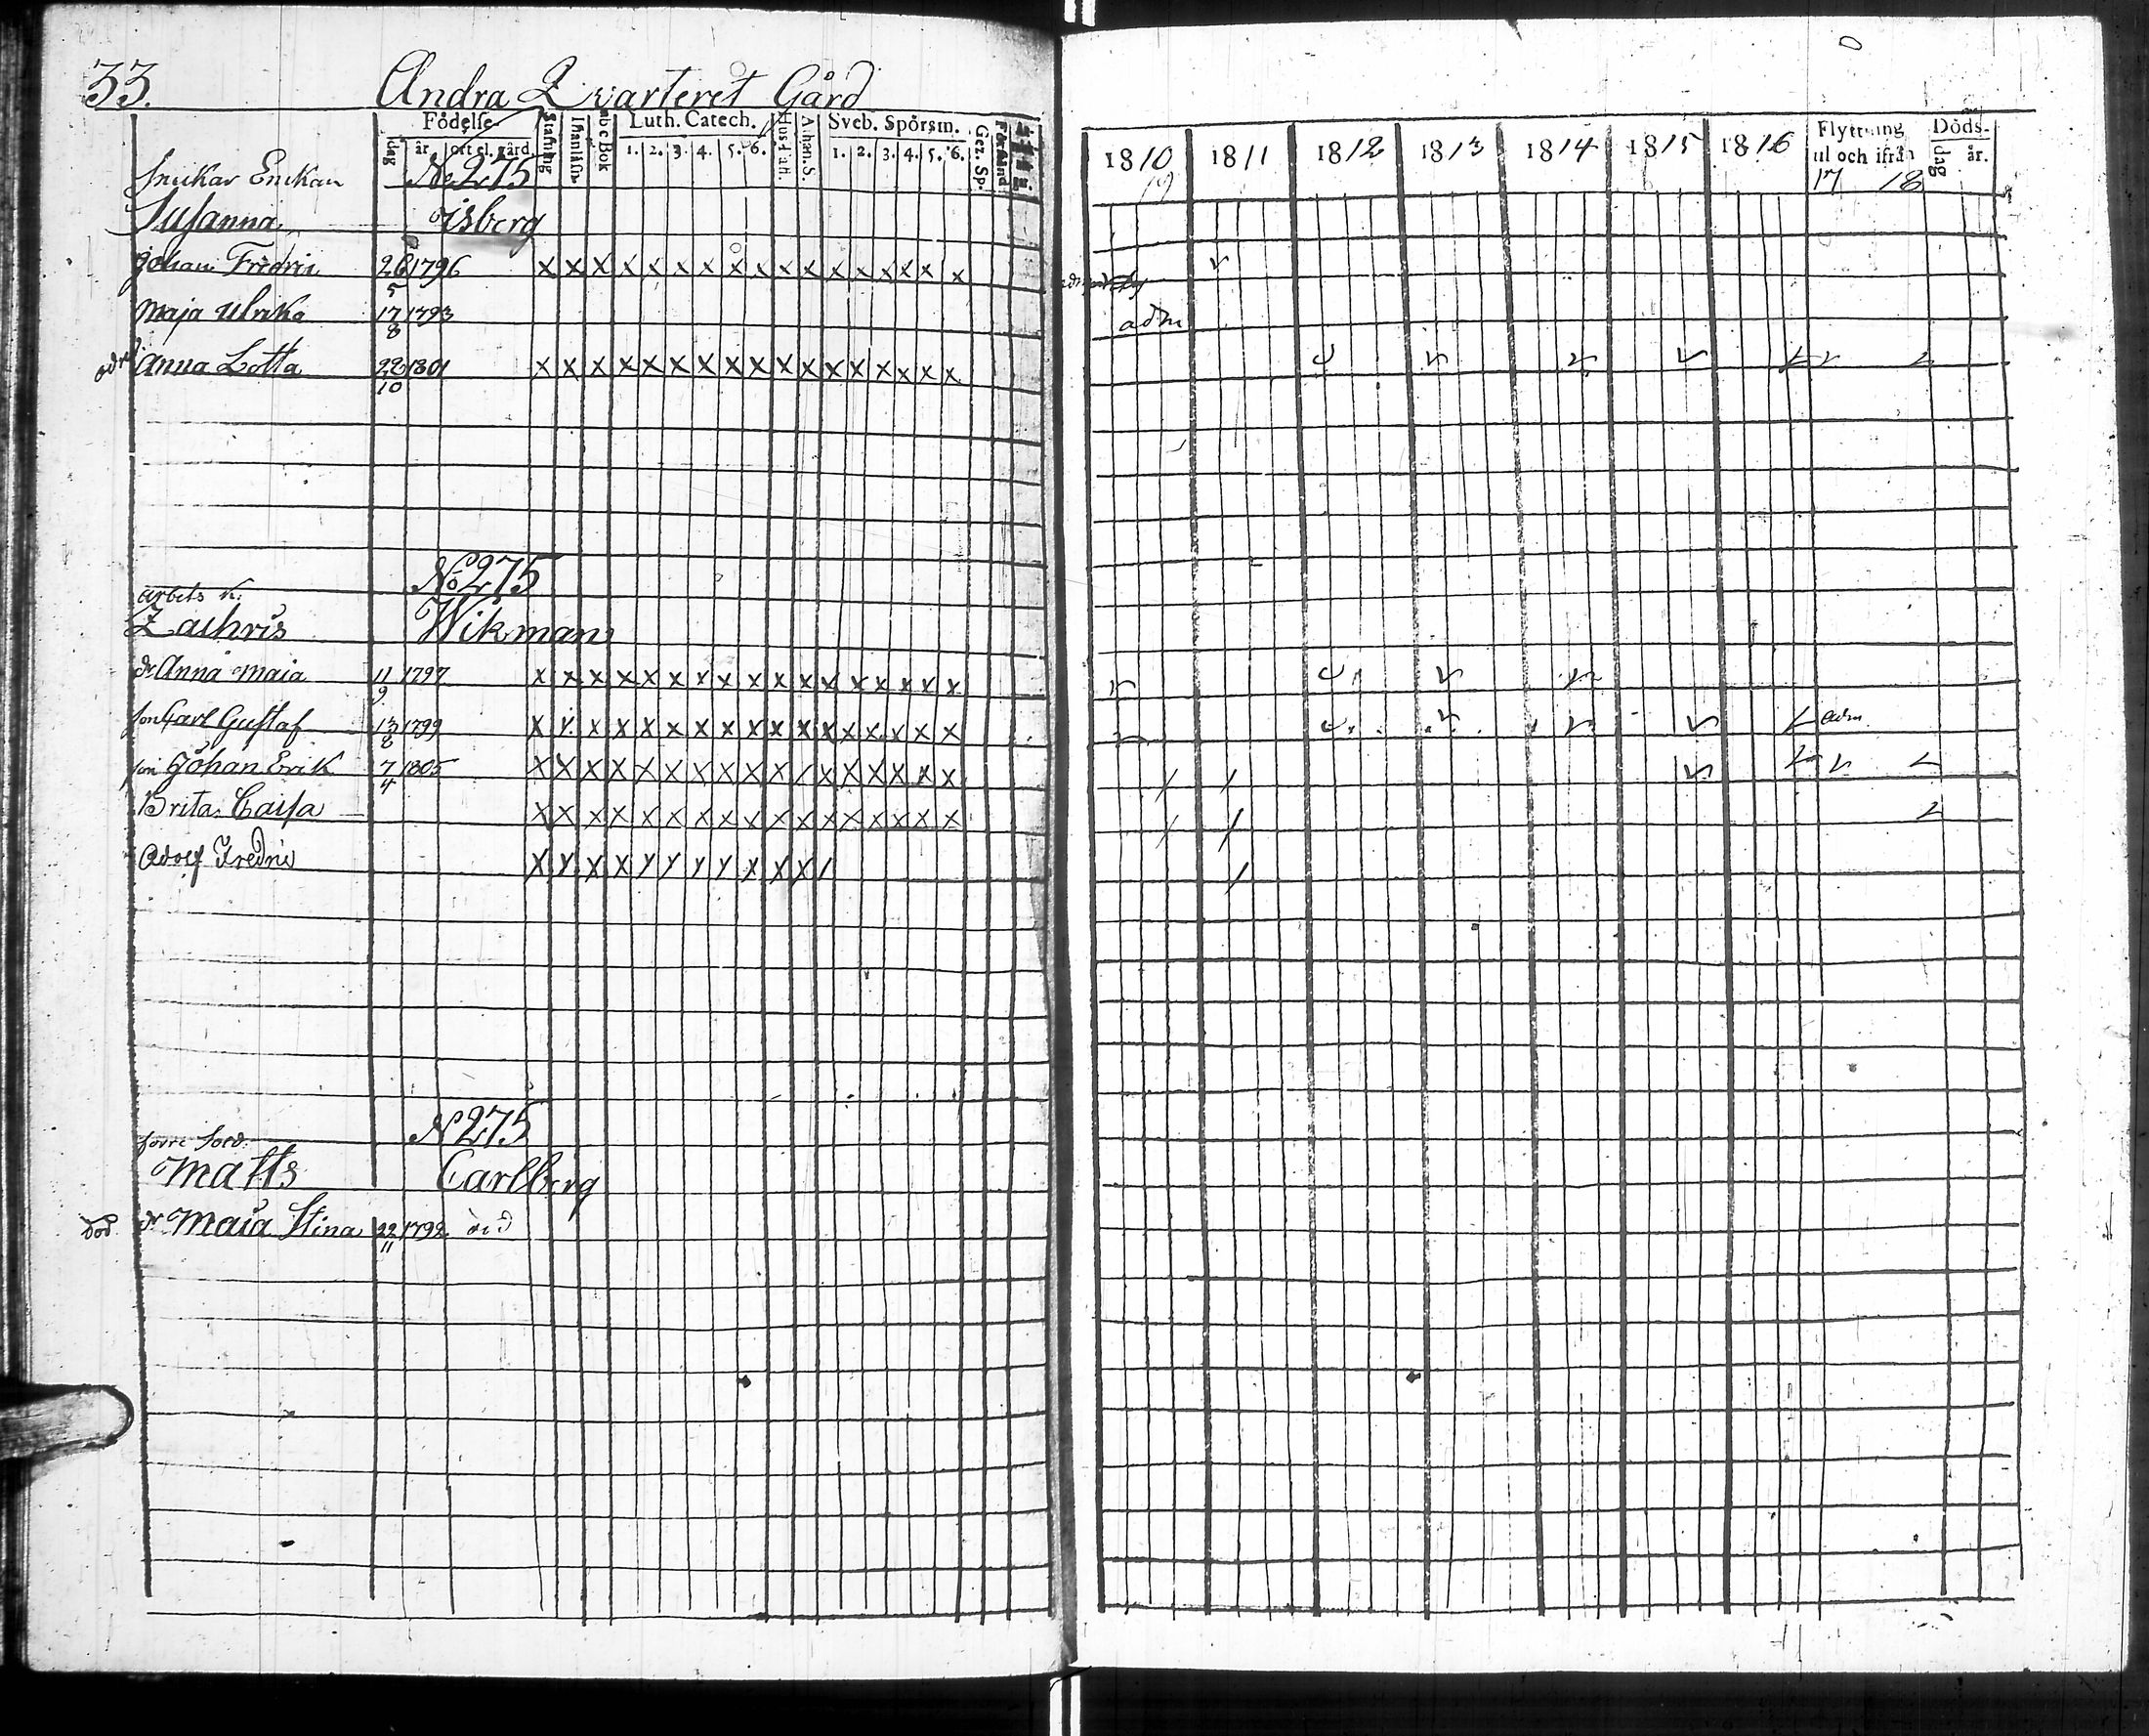 33. Andra Qvarteret Gård
Födelse- Stafning Inanläsn. abc Bok Luth. Catech. Hus-Tafl. Athan. S. Sveb. Spörsm. Gez. Sp. Förstånd
dag år ort el. gård 1. 2. 3. 4. 5. 6. 1. 2. 3. 4. 5. 6.
1810 1811 1812 1813 1814 1815 1816 Flyttning ut och ifrån Döds- dag år.
17 18
Snickar Enckan No 275
Susanna Isberg
Johan Fredric 26/5 1796 x x x x x x x x x x x x x x x x x
Maja Ulrika 17/8 1793 adm
Anna Lotta 22/10 1801 x x x x x x x x x x x x x x x x x
No 275
arbets k.
Zachris Wikman
dr Anna Maja 11/9 1797 x x x x x x x x x x x x x x x x x
son Carl Gustaf 13/8 1799 x x x x x x x x x x x x x x x x x adm
son Johan Erik 7/4 1805 x x x x x x x x x x / x x x x x x
Brita Caisa x x x x x x x x x x x x x x x x x
Adolf Fredric x x x x x x x x x x x /
N 275
förre Sold.
Matts Carlberg
död dr Maja Stina 22/11 1792 död